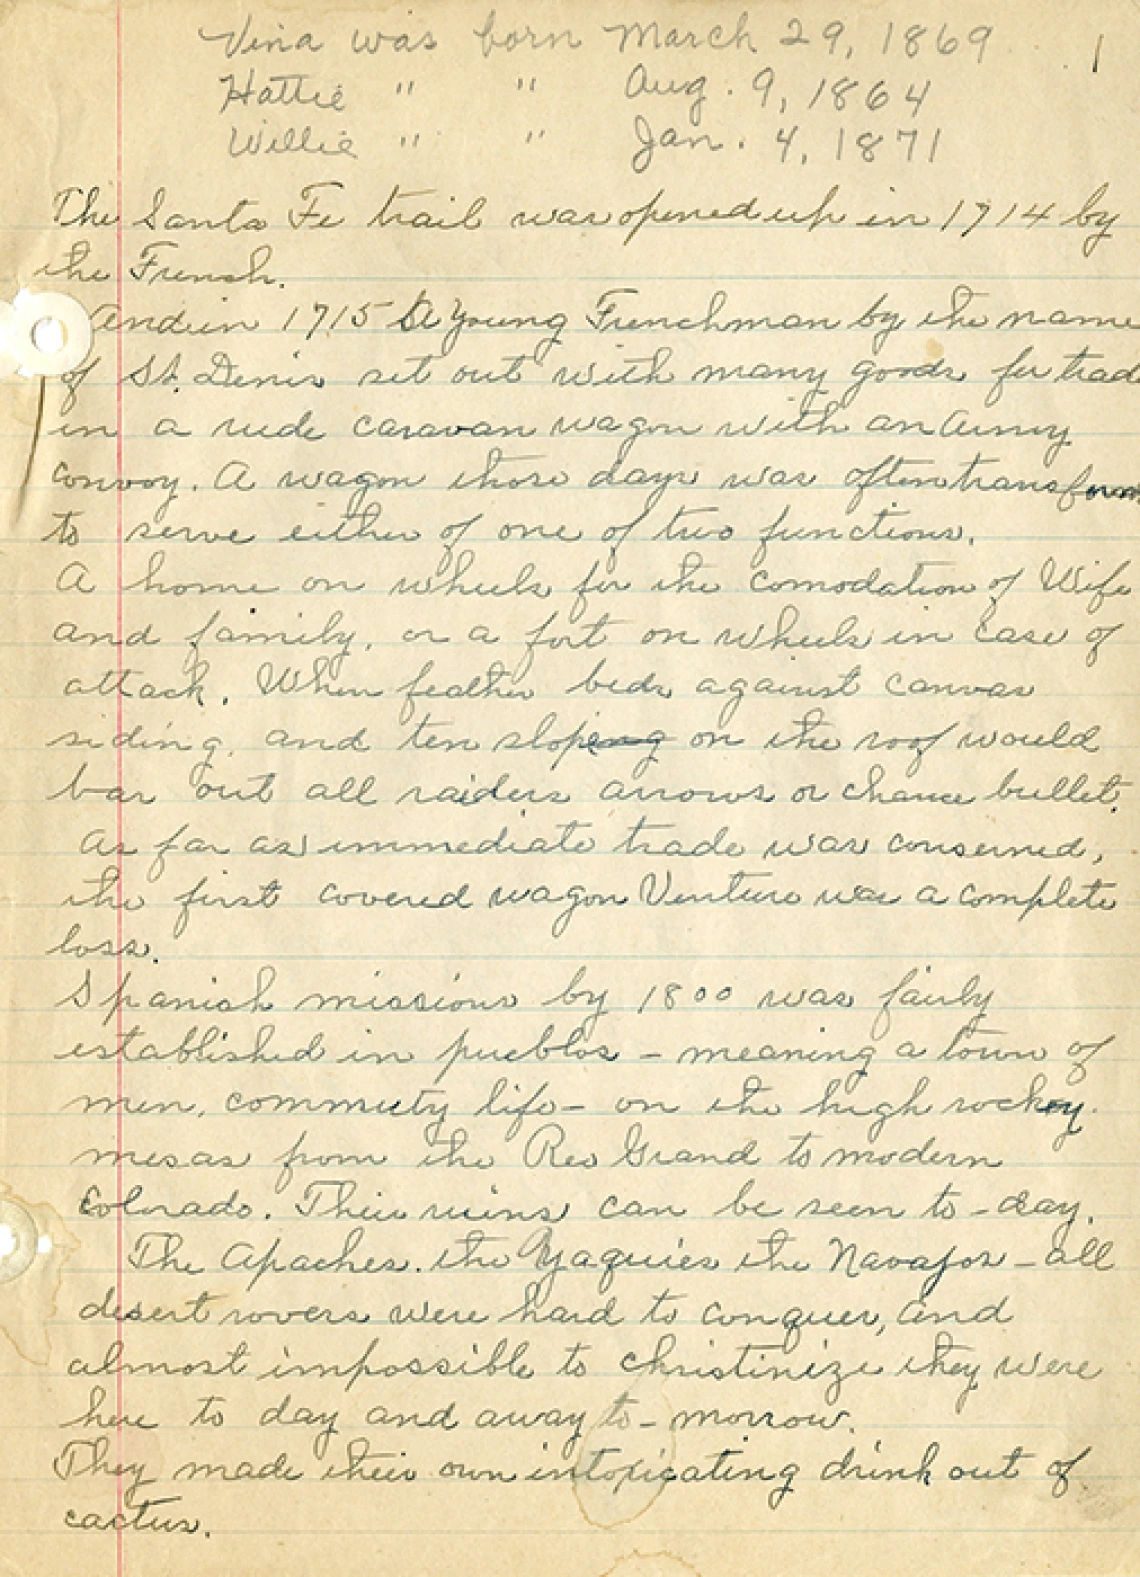 Vina was born March 29, 1869 1
Hattie " " Aug. 9, 1864
Willie " " Jan. 4, 1871
The Santa Fe trail was opened up in 1714 by
the French.
And in 1715 A Young Frenchman by the name
of St. Denis set out with many goods for trad
in a rude caravan wagon with an Army
convoy. A wagon those days was often transform
to serve either of one of two functions.
A home on wheels for the comodation of Wife
and family, or a fort on wheels in case of
attack. When feather beds against canvas
siding, and ten sloping on the roof would
bar out all raiders arrows or chance bullet.
As far as immediate trade was conserned,
the first covered wagon Venture was a complete
loss.
Spanish missions by 1800 was fairly
established in pueblos - meaning a town of
men, commuty life - on the high rockey
mesas from the Reo Grand to modern
Colorado. Their ruins can be seen to-day.
The Apaches. the Yaquies the Navajos - all
desert rovers were hard to conquer, and
almost impossible to christinize they were
here to day and away to-morrow.
They made their own intoxicating drink out of
cactus.